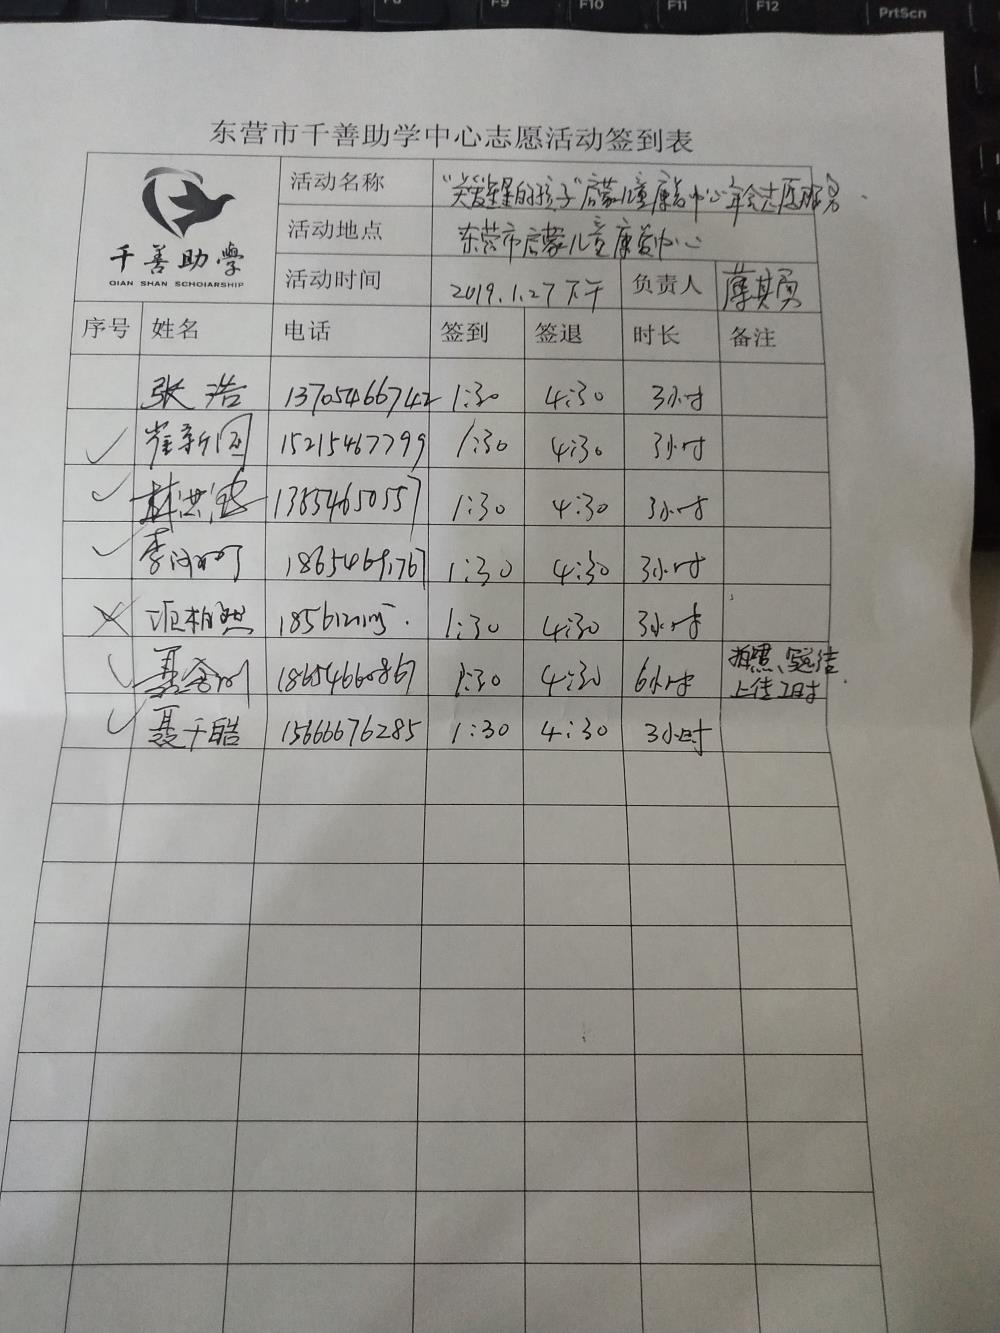 F9 F10 F11 F12 PrtScn
东营市千善助学中心志愿活动签到表
千善助學
QIAN SHAN SCHOIARSHIP
活动名称 "关爱星星的孩子"启蒙儿童康复中心年会志愿服务
活动地点 东营市启蒙儿童康复中心
活动时间 2019.1.27下午 负责人
序号 姓名 电话 签到 签退 时长 备注
张浩 13705466742 1:30 4:30 3小时
崔新国 15215467799 1:30 4:30 3小时
林洪 13854650557 1:30 4:30 3小时
李 18654691767 1:30 4:30 3小时
1:30 4:30 3小时
聂 18654660867 1:30 4:30 6小时 拍照、写总结
聂千皓 15666676285 1:30 4:30 3小时